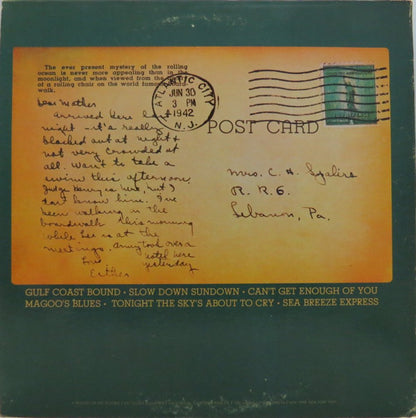 The ever present mystery of the rolling
ocean is never more appealing than in the
moonlight, and when viewed from the
of a rolling chair on the world famous
walk.
ATLANTIC CITY
JUN 30
3 PM
1942
N.J.
POST CARD
Dear Mother
arrived here last
night - it's really
blacked out at night &
not very crowded at
all. Want to take a
swim this afternoon.
Judge Henry is here, but I
don't know him. I've
been walking on the
boardwalk this morning
while Lee is at the
meetings. Army took over a
hotel here
yesterday
Love
Esther
Mrs. C. H.
R. R. 6.
Lebanon, Pa.
GULF COAST BOUND • SLOW DOWN SUNDOWN • CAN'T GET ENOUGH OF YOU
MAGOO'S BLUES • TONIGHT THE SKY'S ABOUT TO CRY • SEA BREEZE EXPRESS